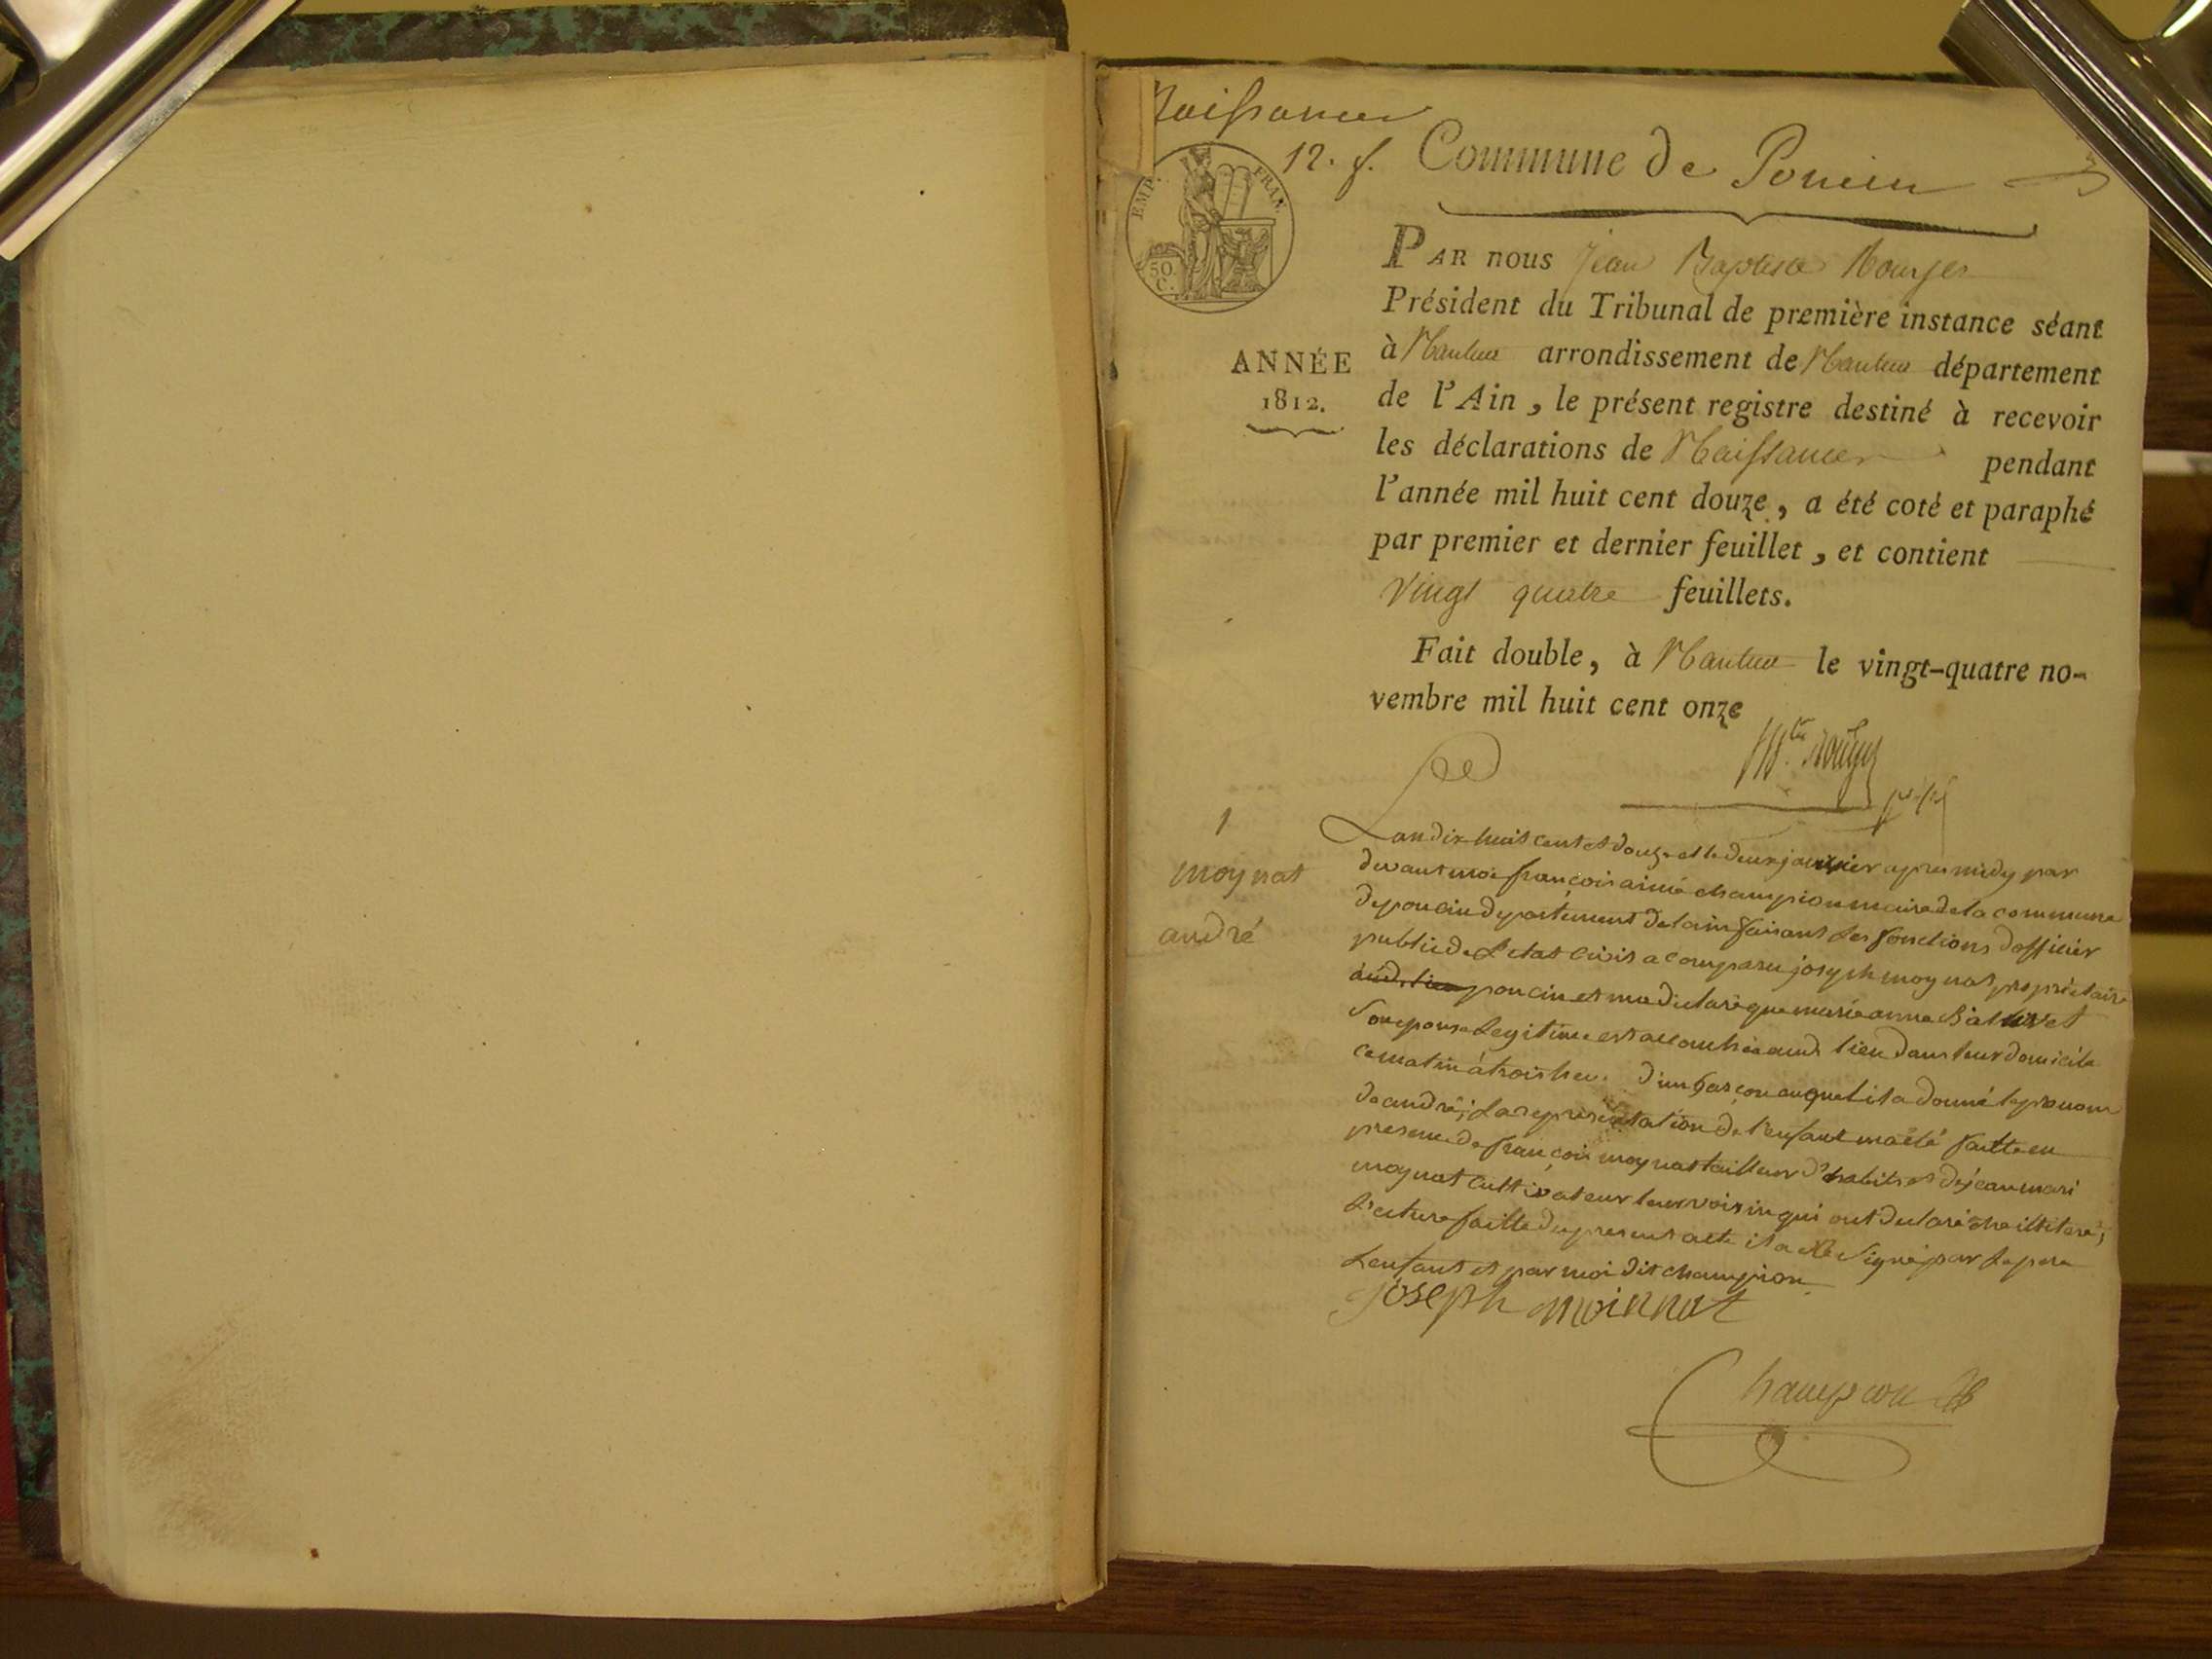 Naissances
12. f. Commune de Poncin
EMP. FRAN.
50.
C.
PAR nous Jean Baptiste Rouyer
Président du Tribunal de première instance séant
à Nantua arrondissement de Nantua département
ANNÉE
1812.
de l'Ain, le présent registre destiné à recevoir
les déclarations de Naissances pendant
l'année mil huit cent douze, a été coté et paraphé
par premier et dernier feuillet, et contient
vingt quatre feuillets.
Fait double, à Nantua le vingt-quatre no-
vembre mil huit cent onze
1
moynat
andré
Lan dix huit cent et douze et le deux janvier apres midy par
devant moi françois aimé champion maire de la commune
de poncin departement de lain faisant les fonctions dofficier
public de L'etat civil a comparu joseph moynat propriétaire
poncin et ma declaré que marie anne
Son epouse Legitime est accouchée aud. lieu dans leur domicile
ce matin à trois heu. d'un garçon auquel il a donné le prenom
de andré; La representation de l'enfant m'a été faitte en
presence de françois moynat tailleur d'habits et de jean mari
moynat cultivateur leur voisin qui ont declaré etre illiteré;
Lecture faitte du present acte il a eté Signé par Le pere
L'enfant et par moi dit champion
joseph moinnat
Champion